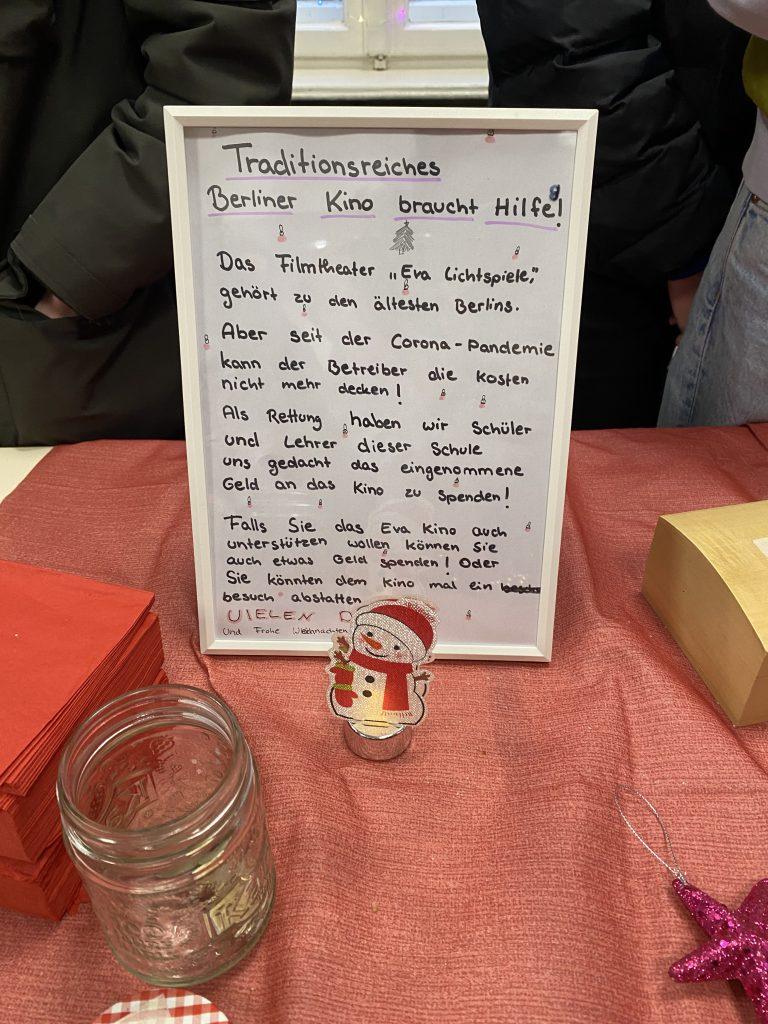 Traditionsreiches
Berliner Kino braucht Hilfe!
Das Filmtheater „Eva Lichtspiele,"
gehört zu den ältesten Berlins.
Aber seit der Corona-Pandemie
kann der Betreiber die kosten
nicht mehr decken!
Als Rettung haben wir Schüler
und Lehrer dieser Schule
uns gedacht das eingenommene
Geld an das Kino zu spenden!
Falls Sie das Eva Kino auch
unterstützen wollen können Sie
auch etwas Geld spenden! Oder
Sie könnten dem Kino mal ein
besuch abstatten
VIELEN D
Und Frohe Weihnachten